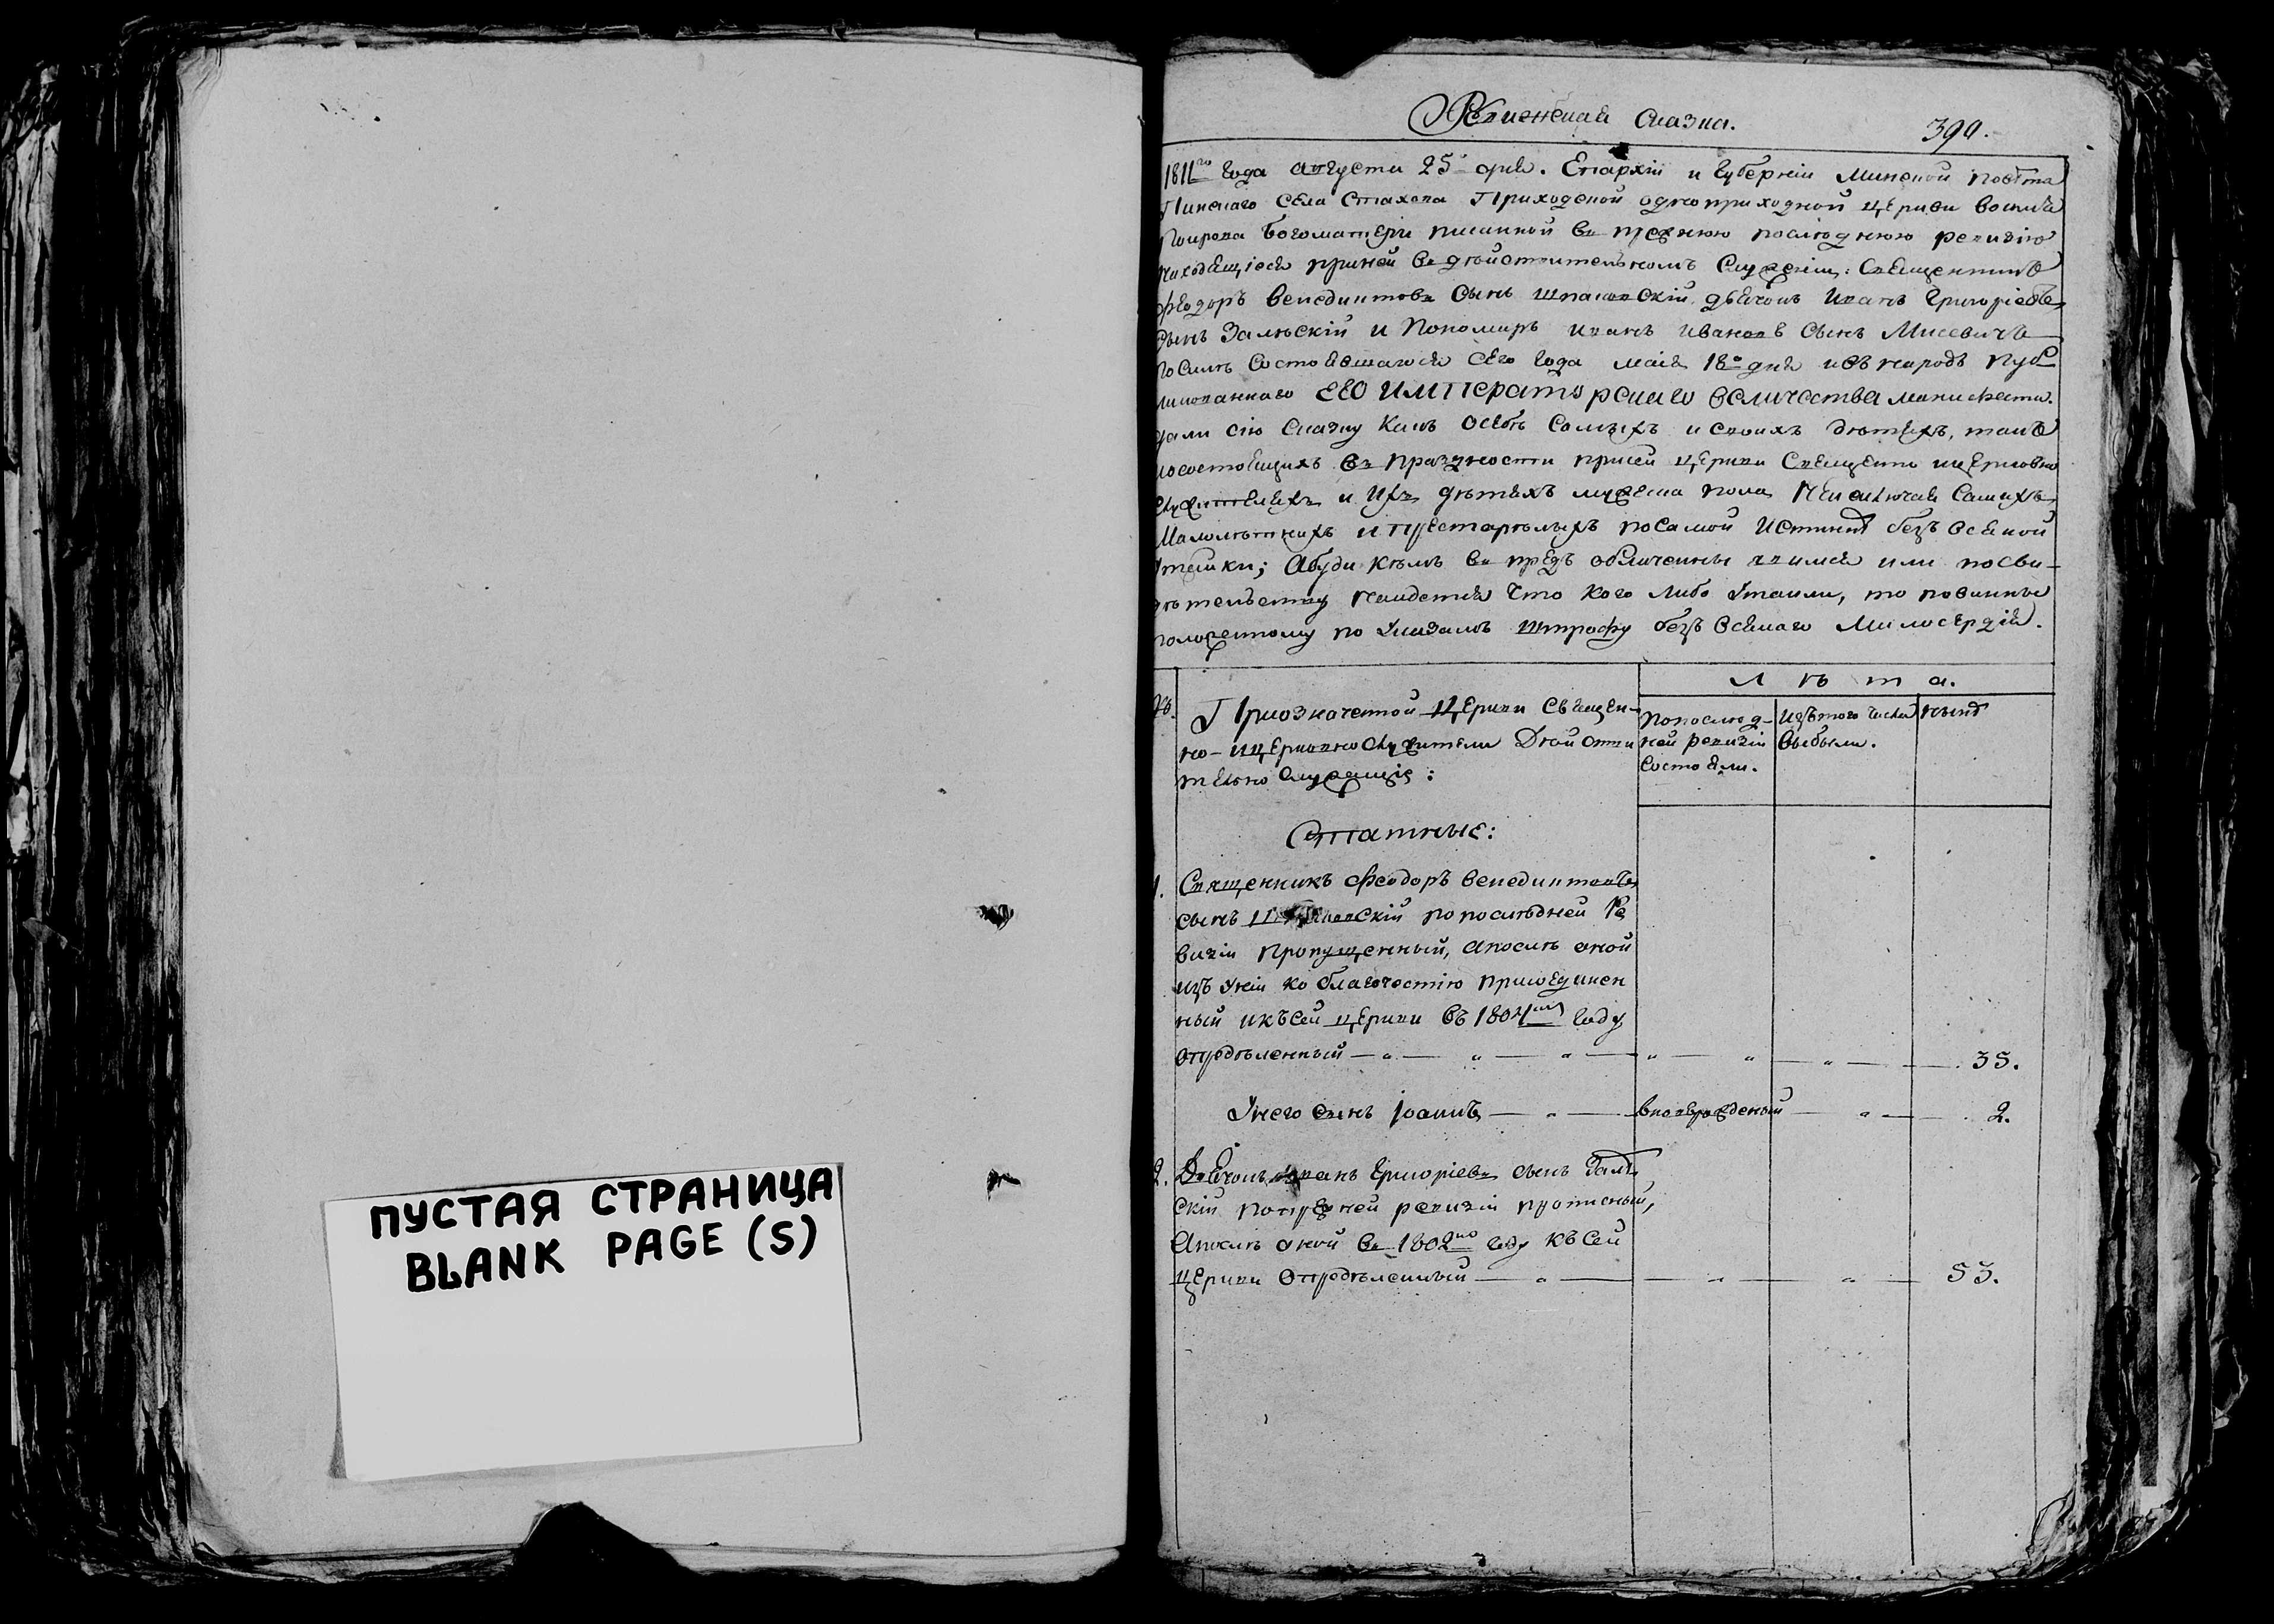 ПУСТАЯ СТРАНИЦА
BLANK PAGE (S)
Ревижская сказка.
399.
1811го года августа 25 дня. Епархіи и губерніи Минской повѣта
Пинскаго села Стахова Приходской одноприходной церкви во имя
Покрова Богоматери писанной въ прежнюю послѣднюю ревизію
находящіеся при ней въ дѣйствительномъ служеніи: Священникъ
Феодоръ Венедиктовъ сынъ Шпаковскій, дьячокъ Иванъ Григоріевъ
сынъ Залѣскій и Пономарь Иванъ Ивановъ сынъ Мисевичъ
после состоявшагося сего года маія 18го дня и въ народъ пуб
ликованнаго ЕГО ИМПЕРАТОРСКАГО Величества манифеста.
дали сію сказку какъ о себѣ самыхъ и своихъ дѣтяхъ, такъ
и о состоящихъ въ праздности при сей церкви Священно и церковно
служителяхъ и ихъ дѣтяхъ мужеска пола не исключая самыхъ
Малолѣтнихъ и престарѣлыхъ по самой истиннѣ безъ всякой
утайки; А буди кѣмъ въ предь обличенны явимся или по сви-
дѣтельству найдется что кого либо утаили, то повинны
положенному по указамъ штрафу безъ всякаго Милосердія.
№. При означенной церкви священ-
но- и церковнослужители Дѣйстви
тельно служащіе:
Л ѣ т а.
По послѣд-
ней ревизіи
состояли.
Изъ того числа
выбыли.
нынѣ
Статные:
1. Священникъ Феодоръ Венедиктовъ
сынъ Шпаковскій по послѣдней Ре
визіи пропущенный, а послѣ оной
изъ Уніи ко благочестію присоединен
ный и къ сей церкви въ 1804мъ году
опредѣленный — „ — „ — „ — „ — „ — „ — 35.
У него сынъ Іоаннъ — „ — вновьрожденый — „ — 2.
2. Дьячокъ Иванъ Григоріевъ сынъ Залѣ
скій по прежней ревизіи прописный,
А послѣ оной въ 1802мъ году къ сей
церкви опредѣленный — „ — „ — „ — 53.